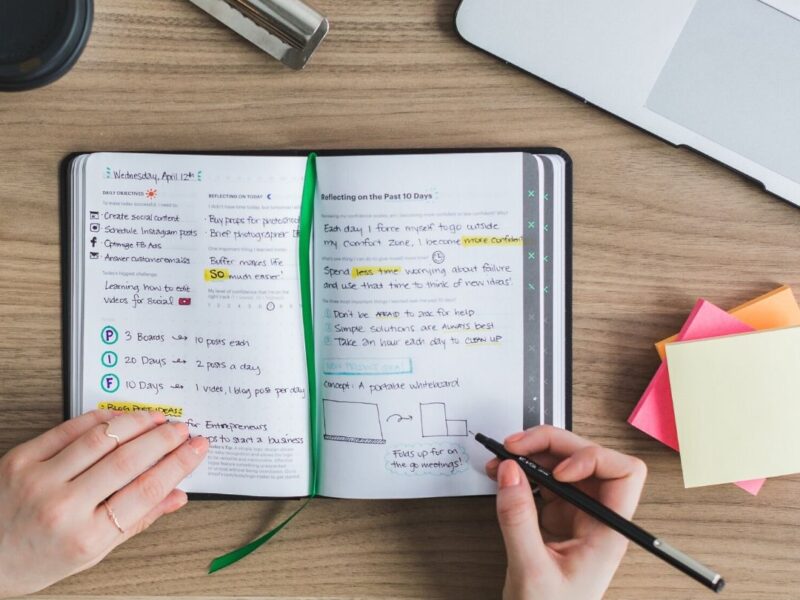 Wednesday, April 12th
DAILY OBJECTIVES
To make today successful, I need to
Create social content
Schedule Instagram posts
Optimize FB Ads
Answer customer emails
Today's biggest challenge
Learning how to edit
videos for social
P 3 Boards → 10 posts each
I 20 Days → 2 posts a day
F 10 Days → 1 video, 1 blog post per day
BLOG POST IDEAS:
for Entrepreneurs
to start a business
REFLECTING ON TODAY
· Buy props for photoshoot
· Brief photographer
One important thing I learned today
Buffer makes life
SO much easier!
Reflecting on the Past 10 Days
Each day I force myself to go outside
my comfort zone, I become more confident
Spend less time worrying about failure
and use that time to think of new ideas!
1 Don't be AFRAID to ask for help
2 Simple solutions are ALWAYS best
3 Take an hour each day to CLEAN UP
NEW PRODUCT IDEA!
Concept: A portable whiteboard
Folds up for on
the go meetings!